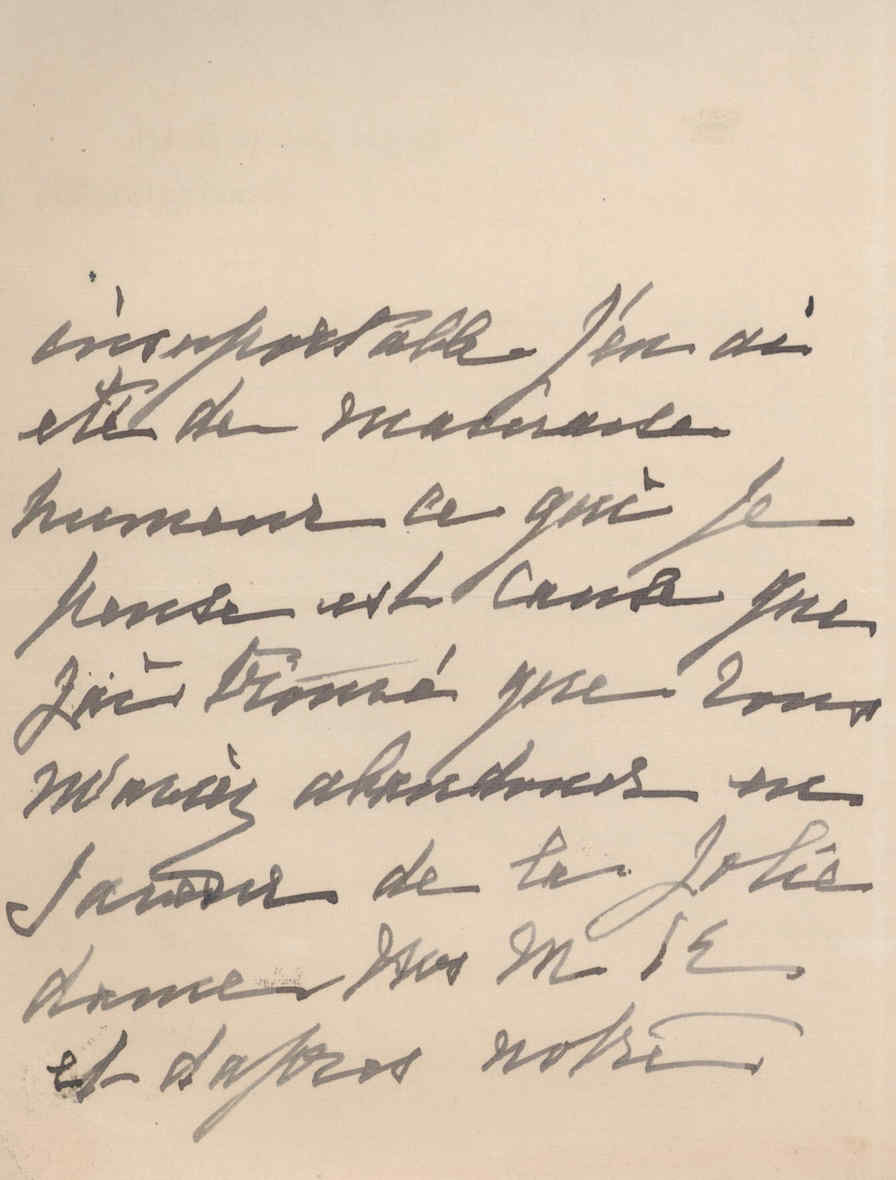 insuportable j'en ai
eté de mauvaise
humeur ce qui je
pense est cause que
j'ai trouvé que vous
m'aviez abandonner en
faveur de la jolie
dame Mrs M
et d'aprés notre